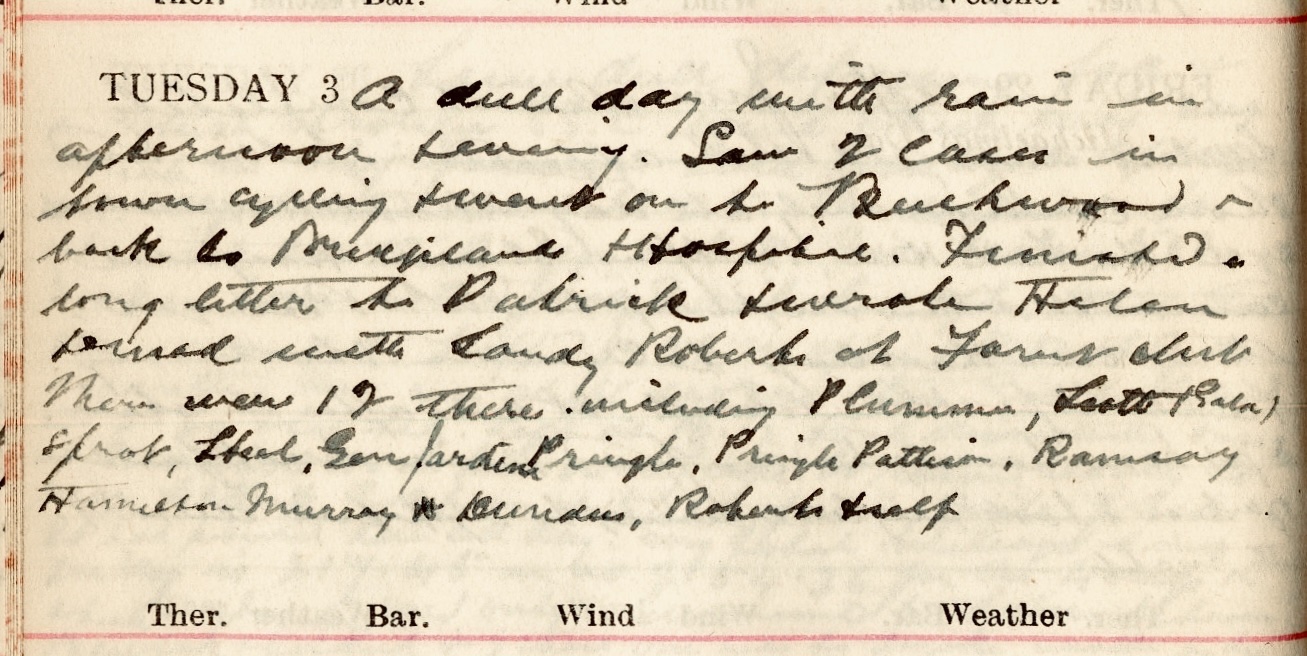 Ther. Bar. Wind Weather
TUESDAY 3 A dull day with rain in
afternoon & evening. Saw 2 cases in
town cycling & went on to Buckwood &
back to & Hospital. Finished a
long letter to Patrick & wrote Helen
& dined with Sandy Roberts at Forest Club
There were 12 there including Plummer, Scott (Gala)
Sprot, Steel, Gen Jardine Pringle, Pringle Pattison, Ramsay
Hamilton Murray Dundas, Roberts & self
Ther. Bar. Wind Weather